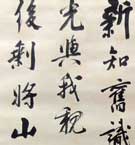 新知舊識
光與我親
後剩將山